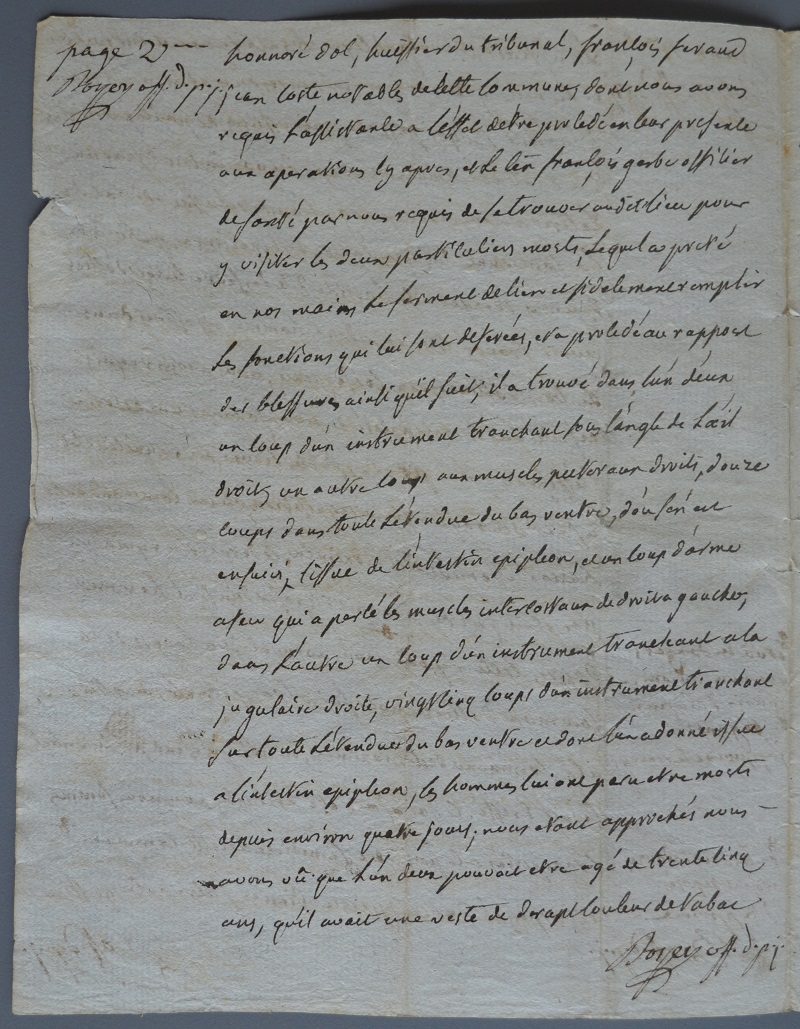 page 2me
Boyer off. de p. j.
honnoré dol, huissier du tribunal, françois feraud
jean coste notables de cette commune, dont nous avons
requis L'assistance a l'effet d'être procédé en leur presente
aux operations cy apres, et Le Cen françois gerbe officier
de santé par nous requis de se trouver audit lieu pour
y visiter les deux particuliers morts, Lequel a preté
en nos mains Le serment de bien et fidelement remplir
Les fonctions qui lui sont deferées, et a procédé au rapport
des blessures ainsi qu'il suit, il a trouvé dans l'un d'eux
un coup d'un instrument tranchant sous l'angle de L'œil
droit, un autre coup aux muscles pectoraux droits, douze
coups dans toute L'etendue du bas ventre, d'où s'en est
ensuivi, l'issue de l'intestin epipleon, et un coup d'arme
a feu qui a percé les muscles intercostaux de droit a gauche,
dans L'autre un coup d'un instrument tranchant a la
jugulaire droite, vingt cinq coups d'un instrument tranchant
sur toute L'etendue du bas ventre et dont l'un a donné issue
a l'intestin epipleon, les hommes lui ont paru etre morts
depuis environ quatre jours; nous etant approchés nous
avons vû que L'un deux pouvait etre agé de trente cinq
ans, qu'il avait une veste de drapt couleur de tabac
Boyer off. de p. j.